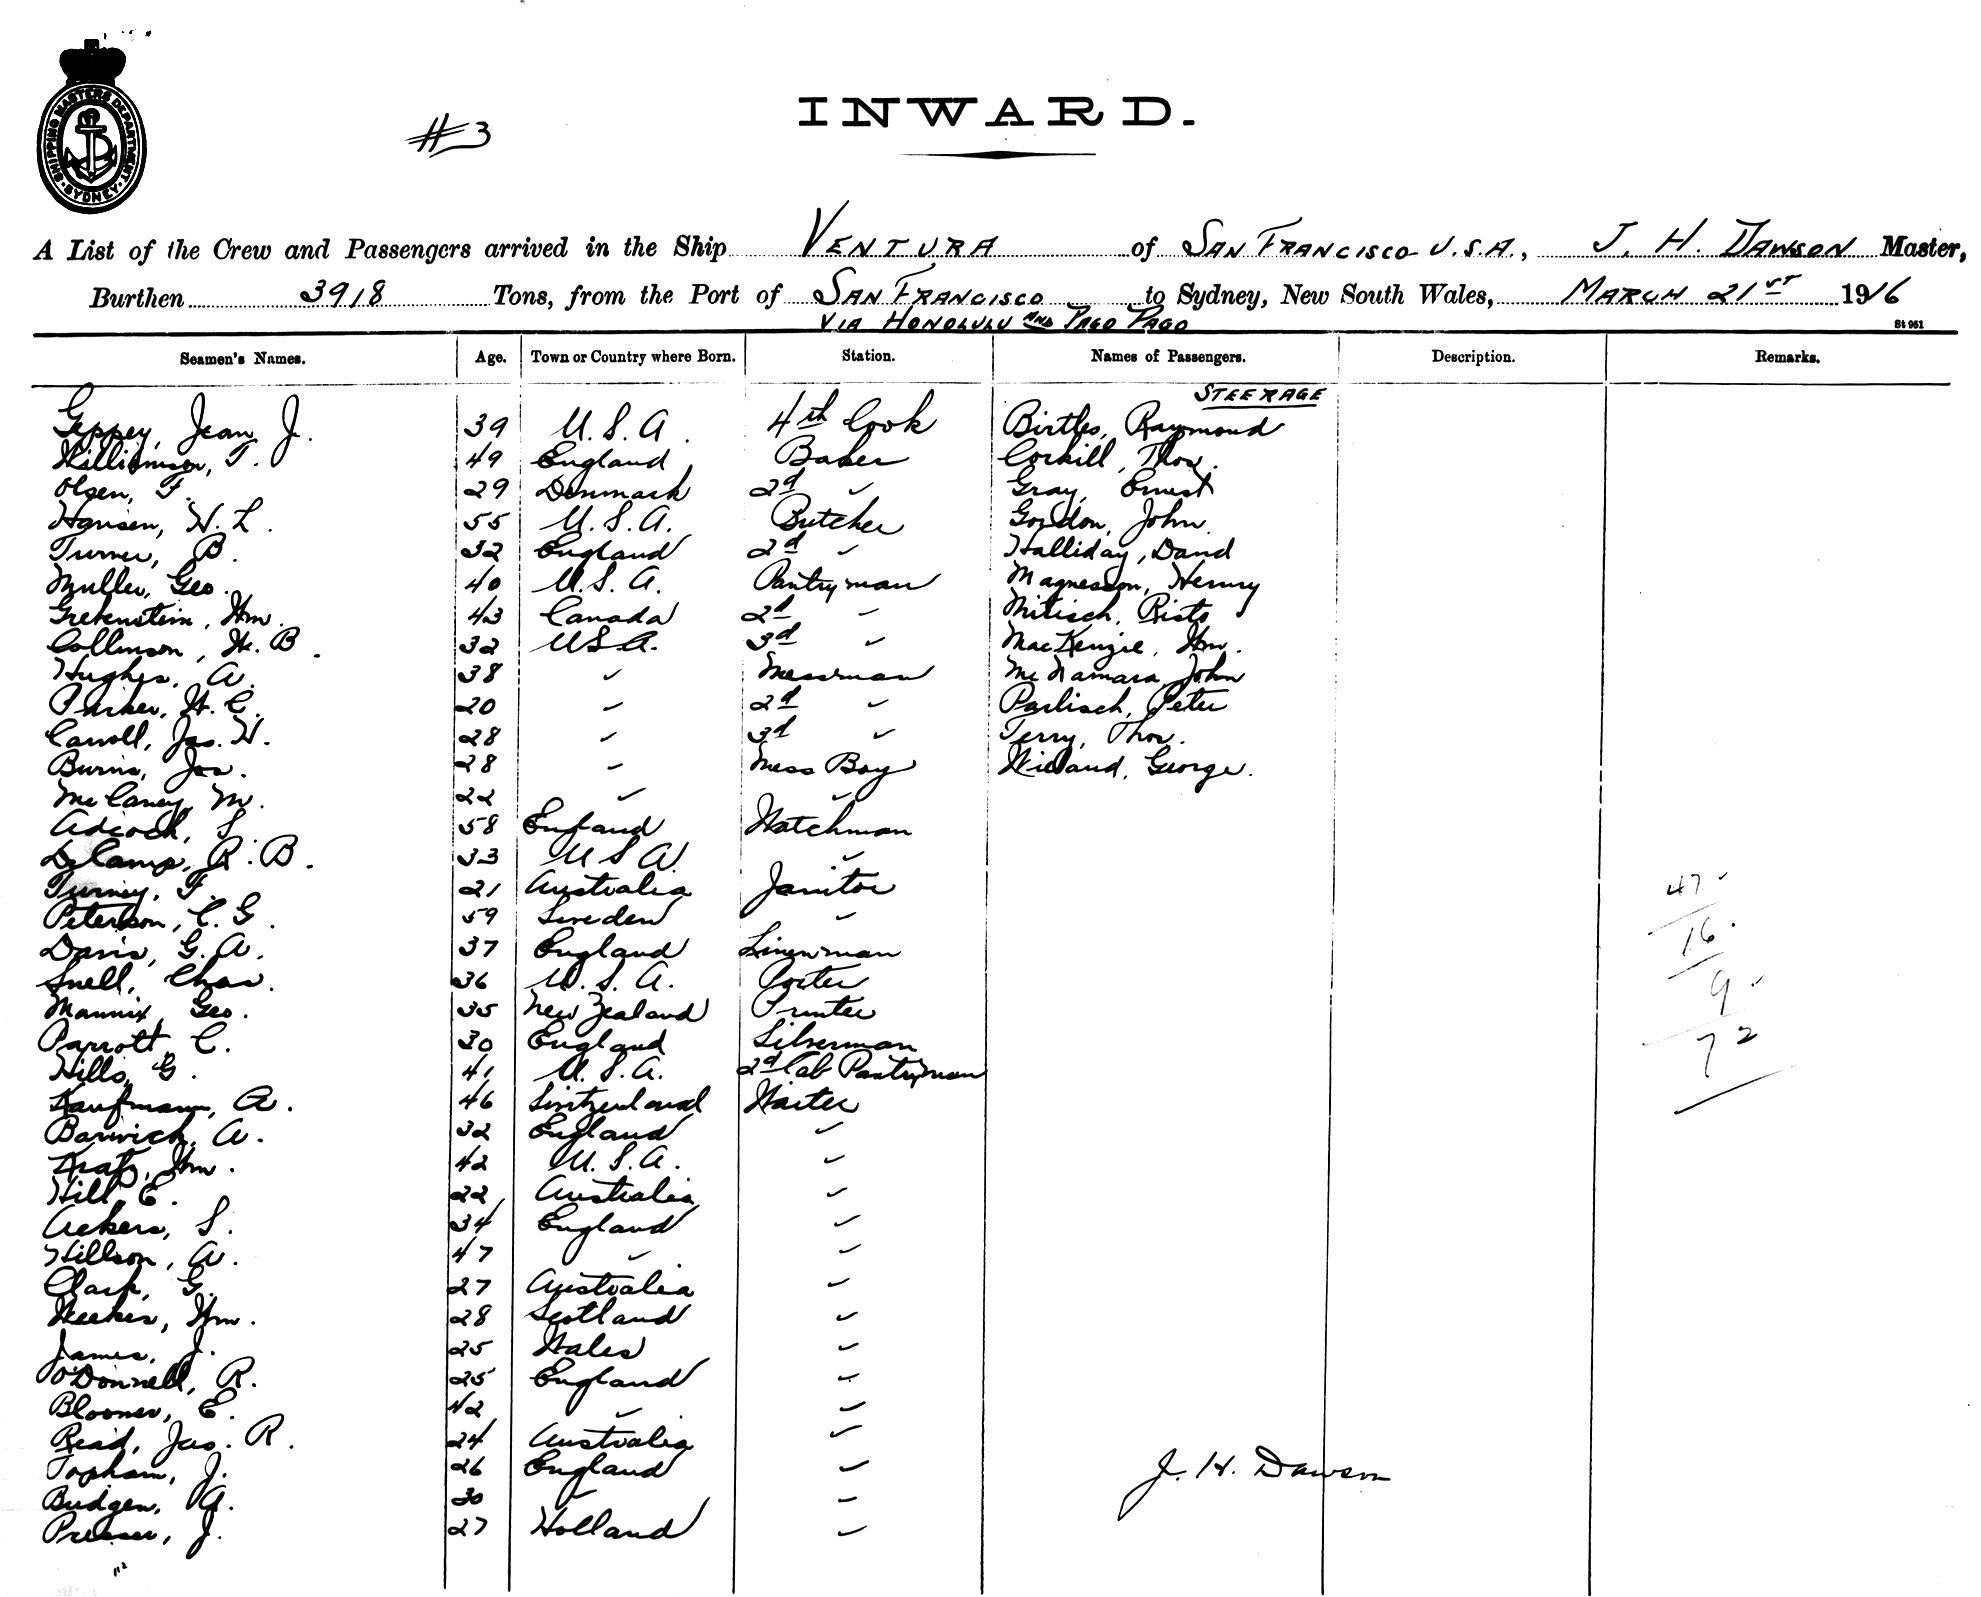 SHIPPING MASTERS DEPARTMENT
SYDNEY
#3
INWARD.
A List of the Crew and Passengers arrived in the Ship VENTURA of SAN FRANCISCO U.S.A., J. H. DAWSON Master,
Burthen 3918 Tons, from the Port of SAN FRANCISCO to Sydney, New South Wales, MARCH 21ST 1916
VIA HONOLULU AND PAGO PAGO
St 951
Seamen's Names. Age. Town or Country where Born. Station. Names of Passengers. Description. Remarks.
STEERAGE
Geppey, Jean J. 39 U.S.A. 4th Cook Birtles, Raymond
Williamson, T. 49 England Baker Corkill, Thos.
Olsen, F. 29 Denmark 2d " Gray, Ernest
Hansen, H. L. 55 U.S.A. Butcher Gordon, John
Turner, B. 32 England 2d " Halliday, David
Muller, Geo. 40 U.S.A. Pantryman Magnesson, Henry
Grebenstein, Wm. 43 Canada 2d " Mitisch, Risto
Collinson, W. B. 32 U.S.A. 3d " MacKenzie, Wm.
Hughes, A. 38 " Messman McNamara, John
Parker, H. C. 20 " 2d " Parlisch, Peter
Carroll, Jas. H. 28 " 3d " Terry, Thos.
Burns, Jas. 28 " Mess Boy Wieland, George.
McCaney, M. 22 " "
Adcock, S. 58 England Watchman
DeCamp, R. B. 33 U S A. "
Turney, F. 21 Australia Janitor
Peterson, C. G. 59 Sweden "
Davis, G. A. 37 England Linenman
Snell, Chas. 36 U.S.A. Porter
Mannix, Geo. 35 New Zealand Printer
Parrott, C. 30 England Silverman
Hills, G. 41 U.S.A. 2d Cab Pantryman
Kaufmann, A. 46 Switzerland Waiter
Barwick, A. 32 England "
Kratz, Wm. 42 U.S.A. "
Hill, E. 22 Australia "
Ackers, S. 34 England "
Hillson, A. 47 " "
Clark, G. 27 Australia "
Weekes, Wm. 28 Scotland "
James, J. 25 Wales "
O'Donnell, R. 25 England "
Bloomer, E. 42 " "
Read, Jas. R. 24 Australia "
Topham, J. 26 England "
Budgen, A. 30 " "
Presser, J. 27 Holland "
47
16
9
72
J. H. Dawson